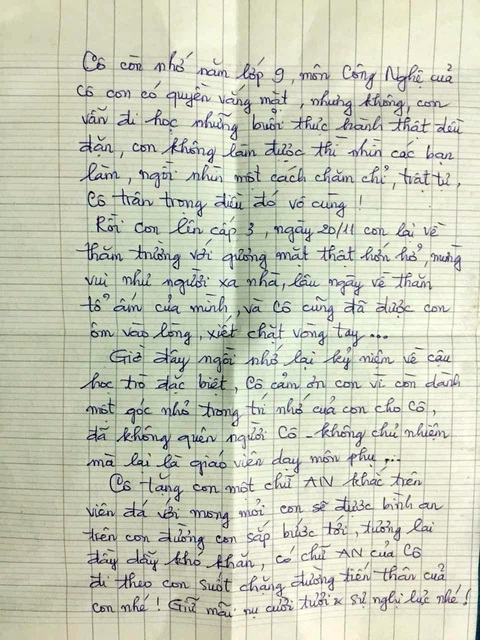 Cô còn nhớ năm lớp 9, môn Công Nghệ của
cô con có quyền vắng mặt, nhưng không, con
vẫn đi học những buổi thực hành thật đều
đặn, con không làm được thì nhìn các bạn
làm, ngồi nhìn một cách chăm chỉ, trật tự,
Cô trân trọng điều đó vô cùng!
Rồi con lên cấp 3, ngày 20/11 con lại về
thăm trường với gương mặt thật hớn hở, mừng
vui như người xa nhà, lâu ngày về thăm
tổ ấm của mình, và cô cũng đã được con
ôm vào lòng, xiết chặt vòng tay ...
Giờ đây ngồi nhớ lại kỷ niệm về cậu
học trò đặc biệt, Cô cảm ơn con vì còn dành
một góc nhỏ trong trí nhớ của con cho Cô,
đã không quên người Cô - không chủ nhiệm
mà lại là giáo viên dạy môn phụ ...
Cô tặng con một chữ AN khắc trên
viên đá với mong mỏi con sẽ được bình an
trên con đường con sắp bước tới, tương lai
đầy dẫy khó khăn, có chữ AN của Cô
đi theo con suốt chặng đường tiến thân của
con nhé! Giữ mãi nụ cười tươi & sự nghị lực nhé!